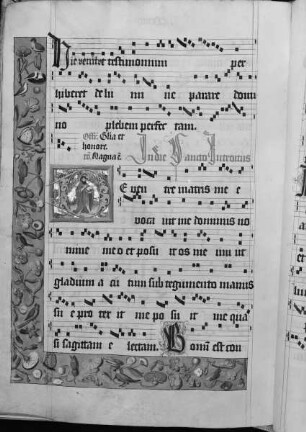 Hic venit vt testimonium per
hiberet de lu mi ne parare domi
no plebem perfec tam.
Offer. Glia et
honore.
Co. Magna e
In die Sancto Introitus
E ven tre matris me e
voca uit me dominus no
mine meo et posu it os me um ut
gladium a cu tum sub tegumento manus
su e pro tex it me po su it me qua
si sagittam e lectam. Bonū est con